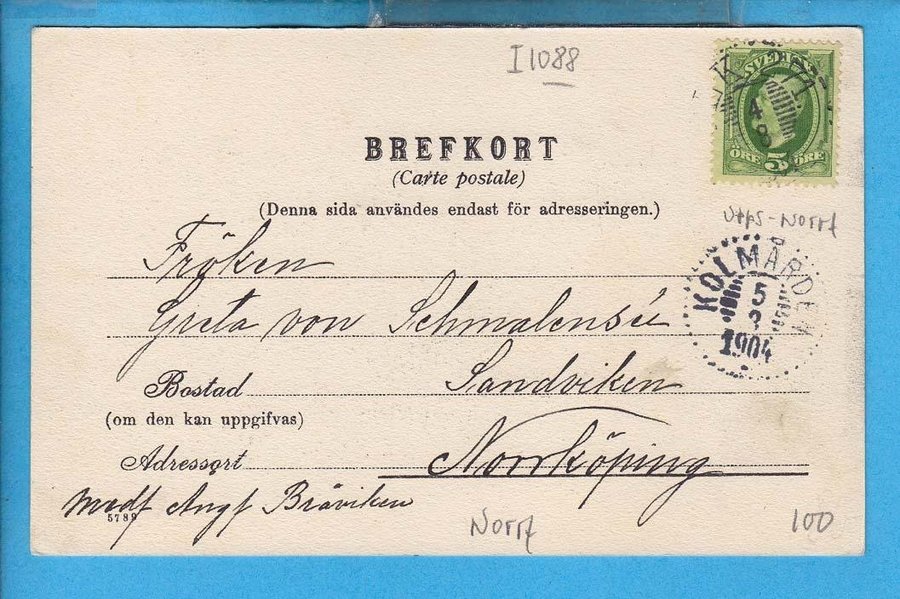 I 1088
SVERIGE
PK 271
4 8
5
ÖRE 5 ÖRE
BREFKORT
(Carte postale)
(Denna sida användes endast för adresseringen.)
Utps-Norrk
KOLMÅRDEN
5
1904
Fröken
Greta von Schmalensée
Bostad Sandviken
(om den kan uppgifvas)
Adressort Norrköping
medf Angf Bråviken
5789
Norrk
100